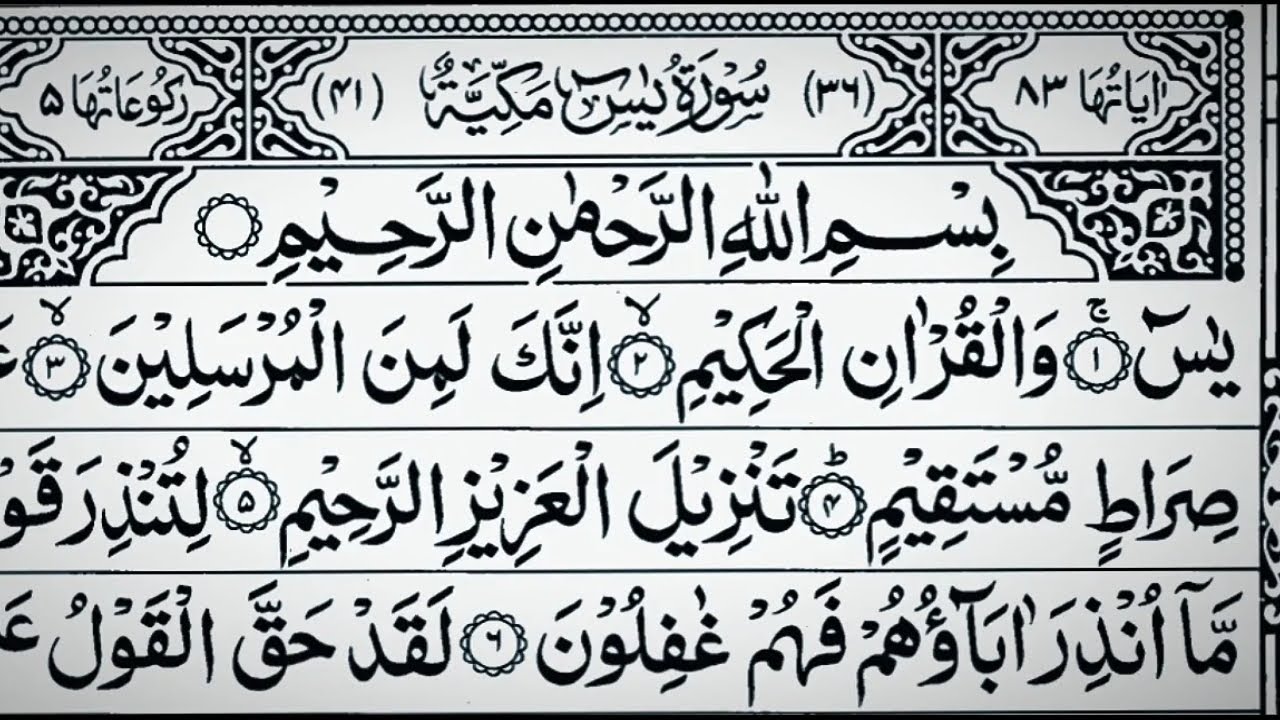 اٰيَاتُهَا ٨٣ (٣٦) سُوْرَةُ يٰسٓ مَكِّيَّةٌ (٤١) رُكُوْعَاتُهَا ٥
بِسْمِ اللّٰهِ الرَّحْمٰنِ الرَّحِيْمِ
يٰسٓ ۚ ﴿١﴾ وَالْقُرْاٰنِ الْحَكِيْمِ ۙ ﴿٢﴾ اِنَّكَ لَمِنَ الْمُرْسَلِيْنَ ۙ ﴿٣﴾ عَ
صِرَاطٍ مُّسْتَقِيْمٍ ؕ ﴿۴﴾ تَنْزِيْلَ الْعَزِيْزِ الرَّحِيْمِ ۙ ﴿۵﴾ لِتُنْذِرَ قَوْ
مَّاۤ اُنْذِرَ اٰبَآؤُهُمْ فَهُمْ غٰفِلُوْنَ ﴿۶﴾ لَقَدْ حَقَّ الْقَوْلُ عَ